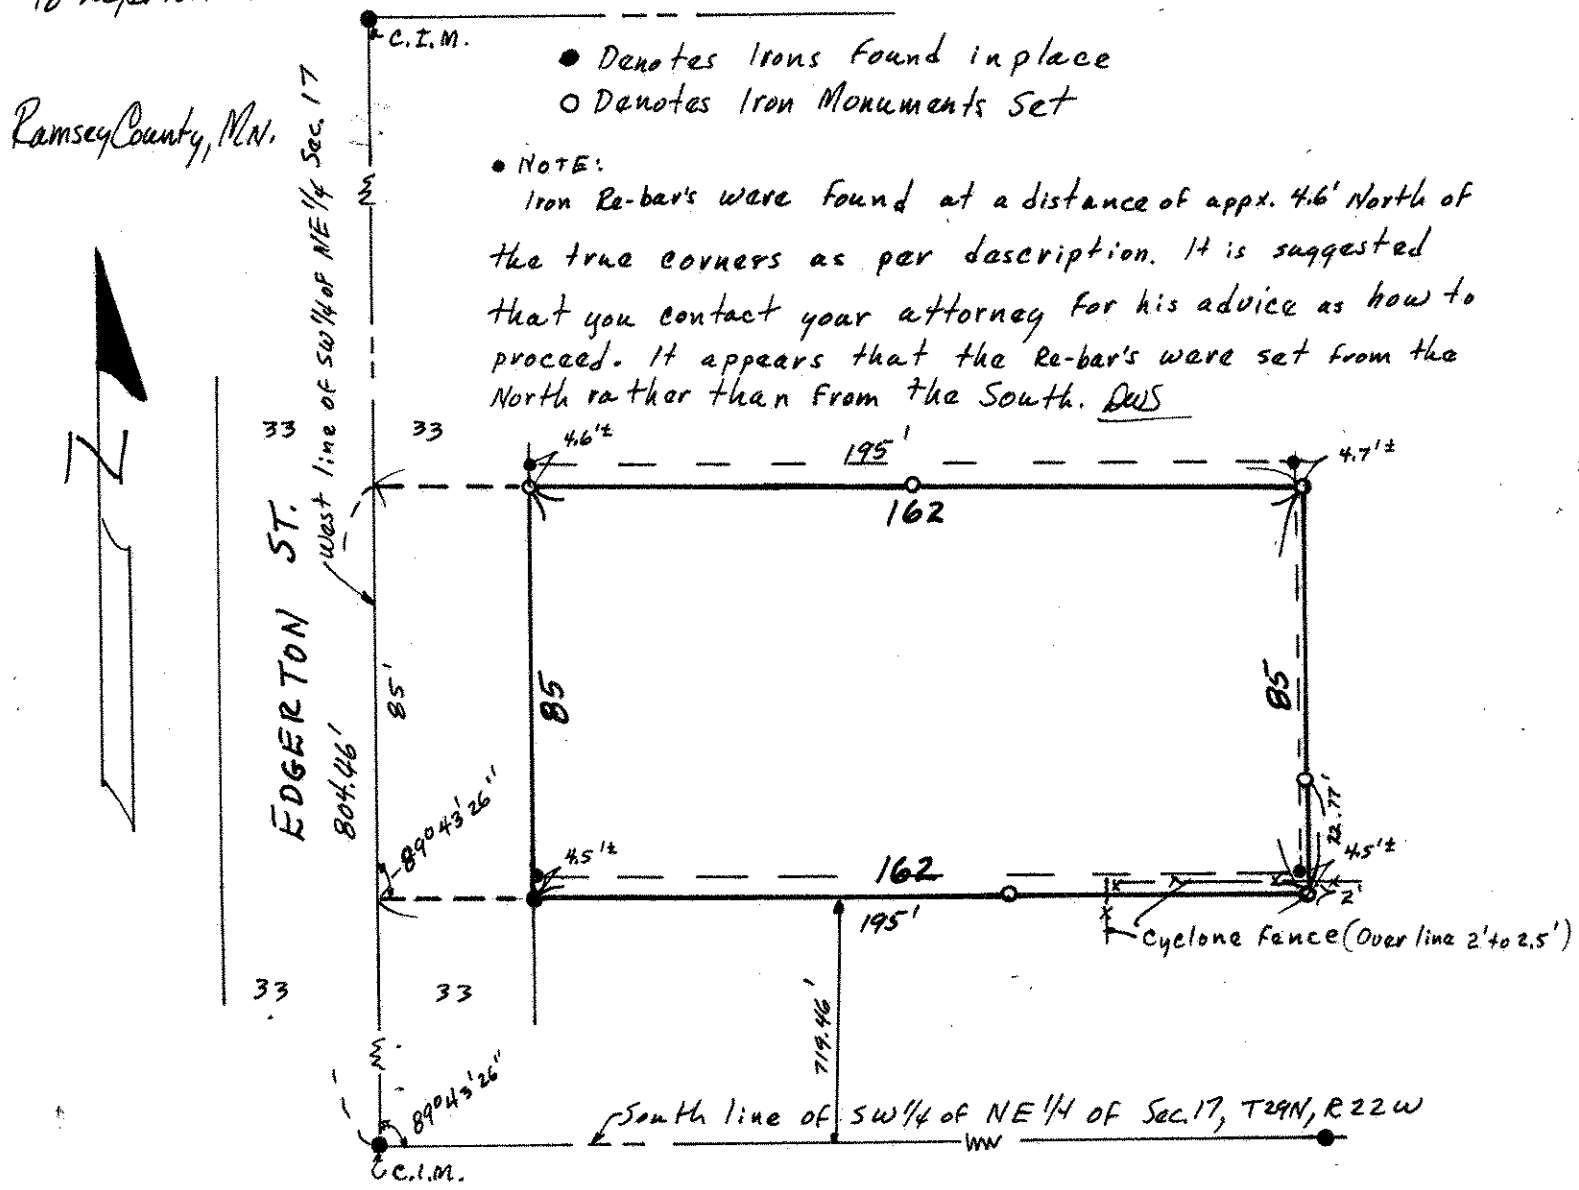 C.I.M.
● Denotes Irons Found in place
○ Denotes Iron Monuments Set
Ramsey County, MN.
West line of SW 1/4 of NE 1/4 Sec. 17
• NOTE:
Iron Re-bar's were found at a distance of appx. 4.6' North of
the true corners as per description. It is suggested
that you contact your attorney for his advice as how to
proceed. It appears that the Re-bar's were set from the
North rather than from the South. DWS
33
33
4.6'±
195'
4.7'±
162
N
EDGERTON ST.
85'
804.46'
85
85
89°43'26"
22.77'
4.5'±
162
4.5'±
195'
2'
Cyclone Fence (Over line 2' to 2.5')
33
33
719.46'
89°43'26"
South line of SW 1/4 of NE 1/4 of Sec. 17, T29N, R22W
C.I.M.